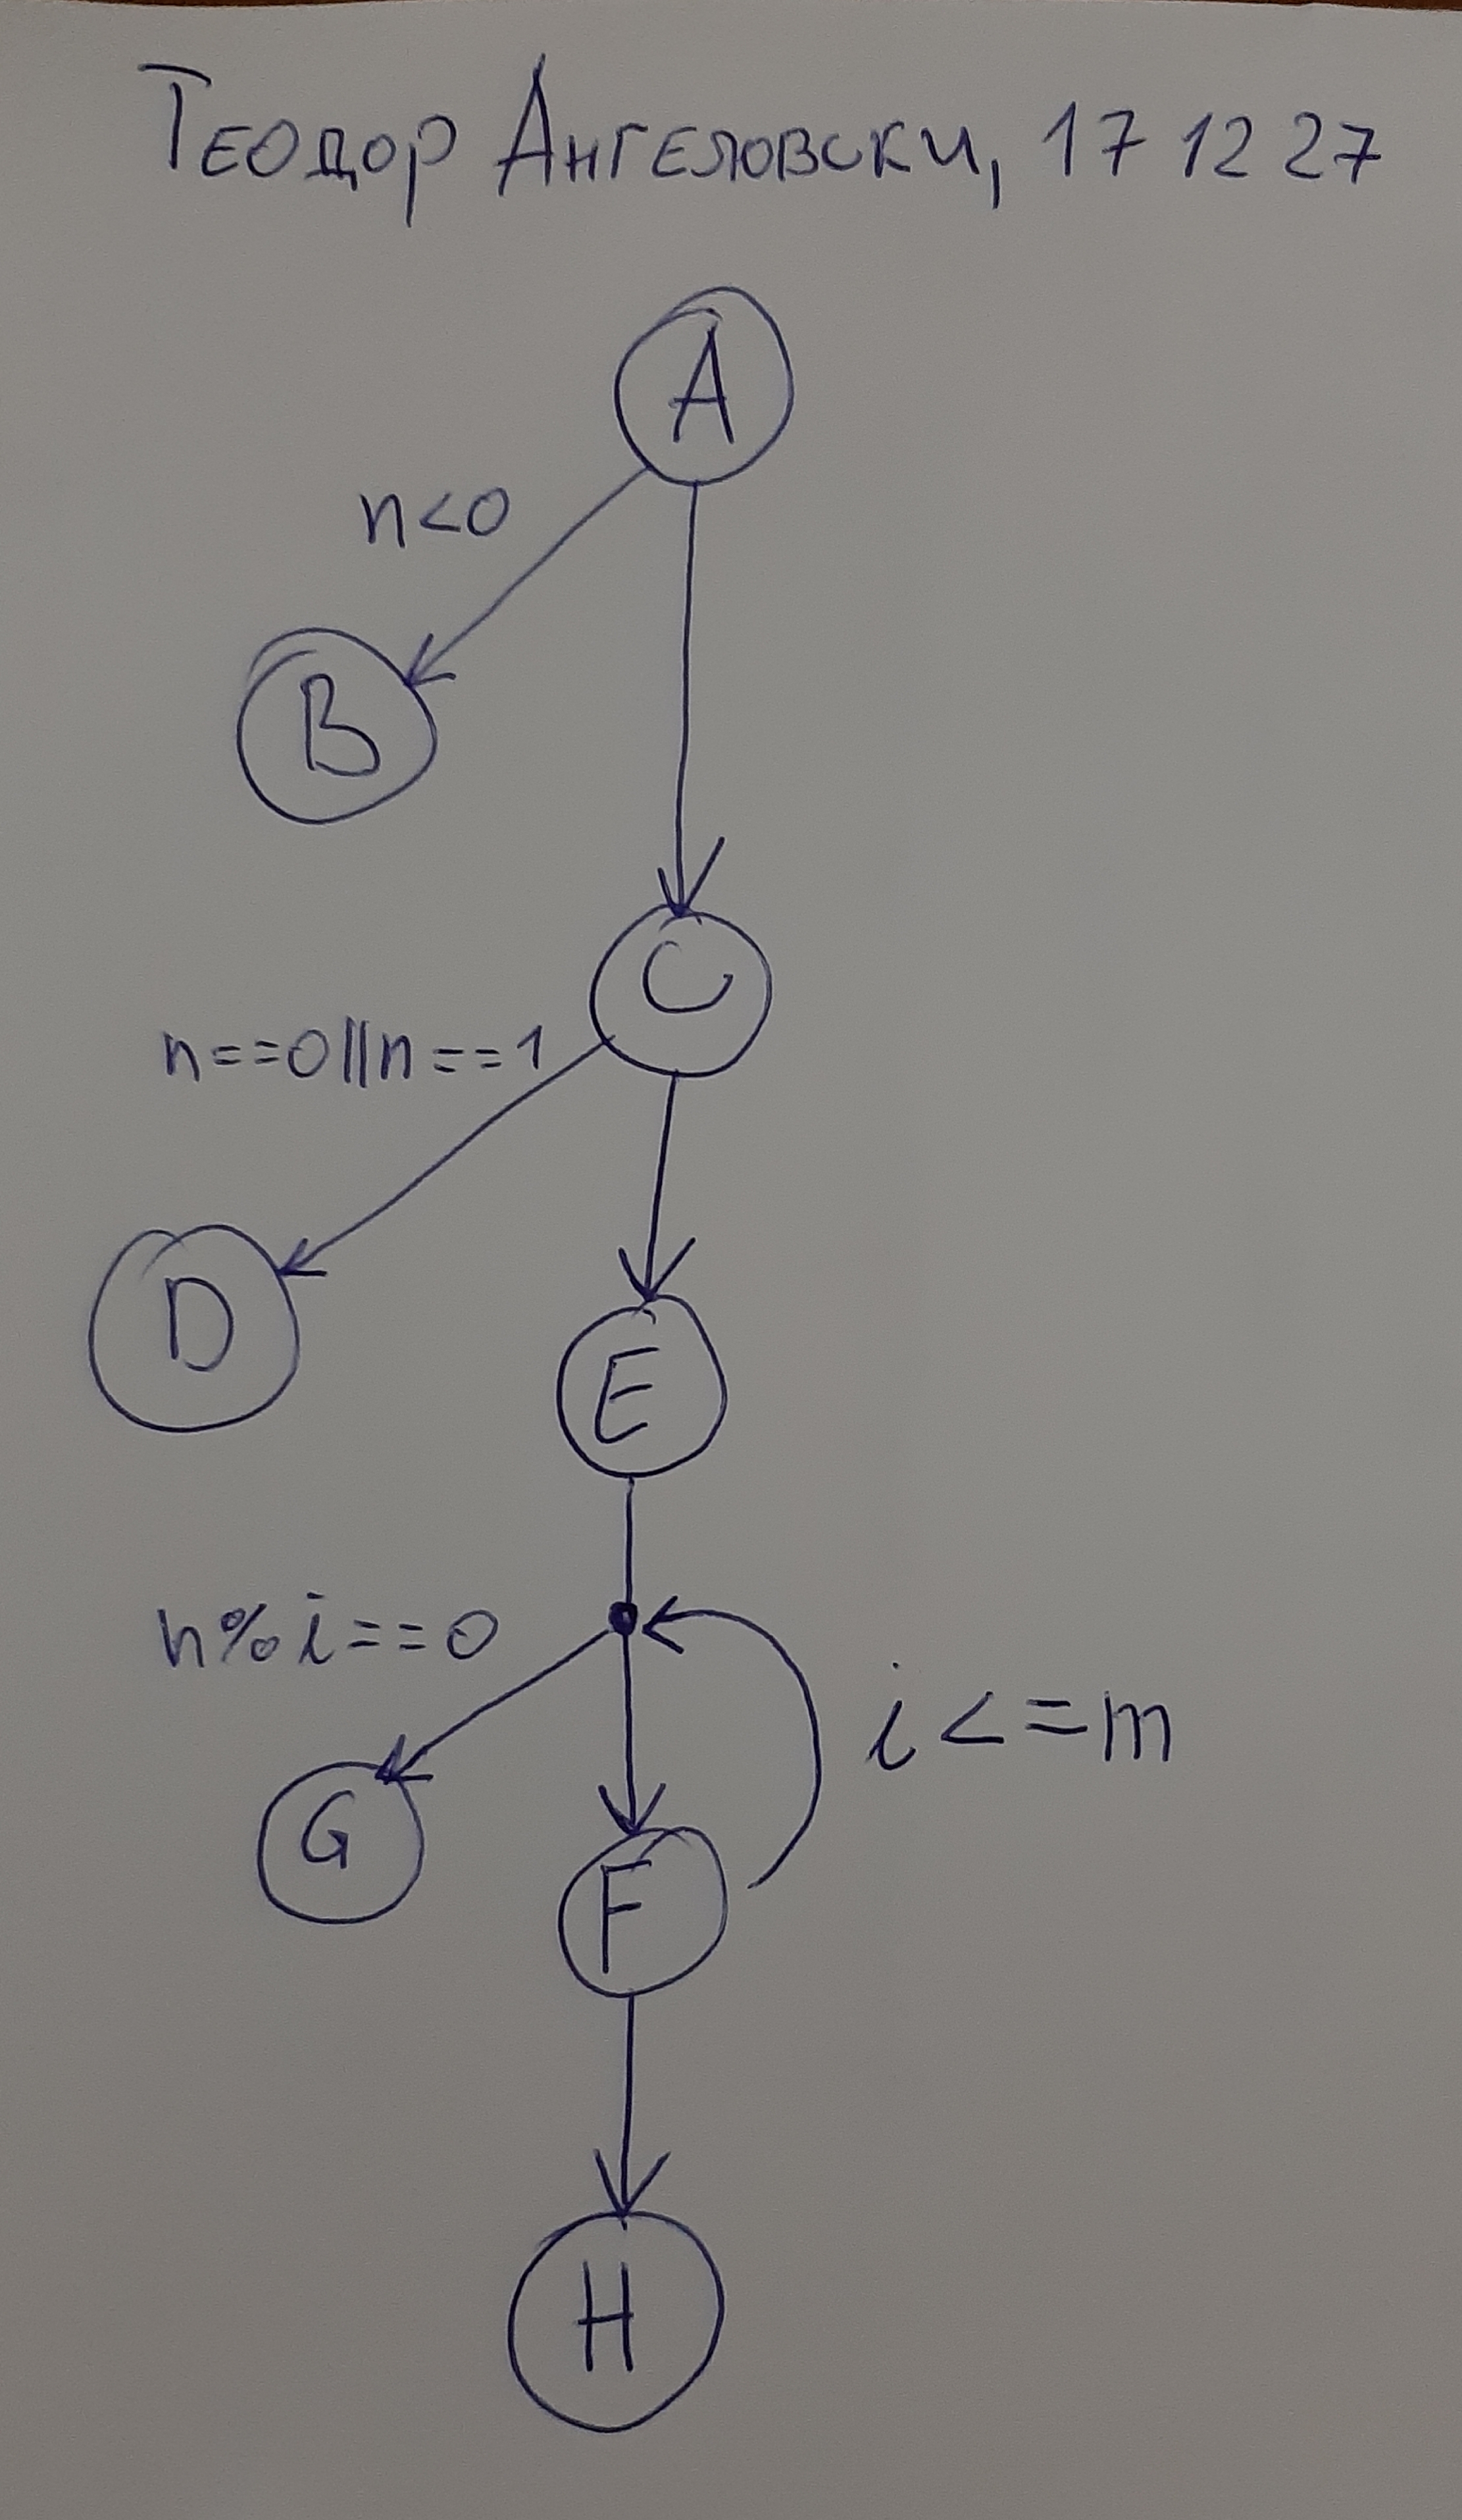 Теодор Ангеловски, 171227
A
n<0
B
C
n==0||n==1
D
E
n%i==0
i<=m
G
F
H